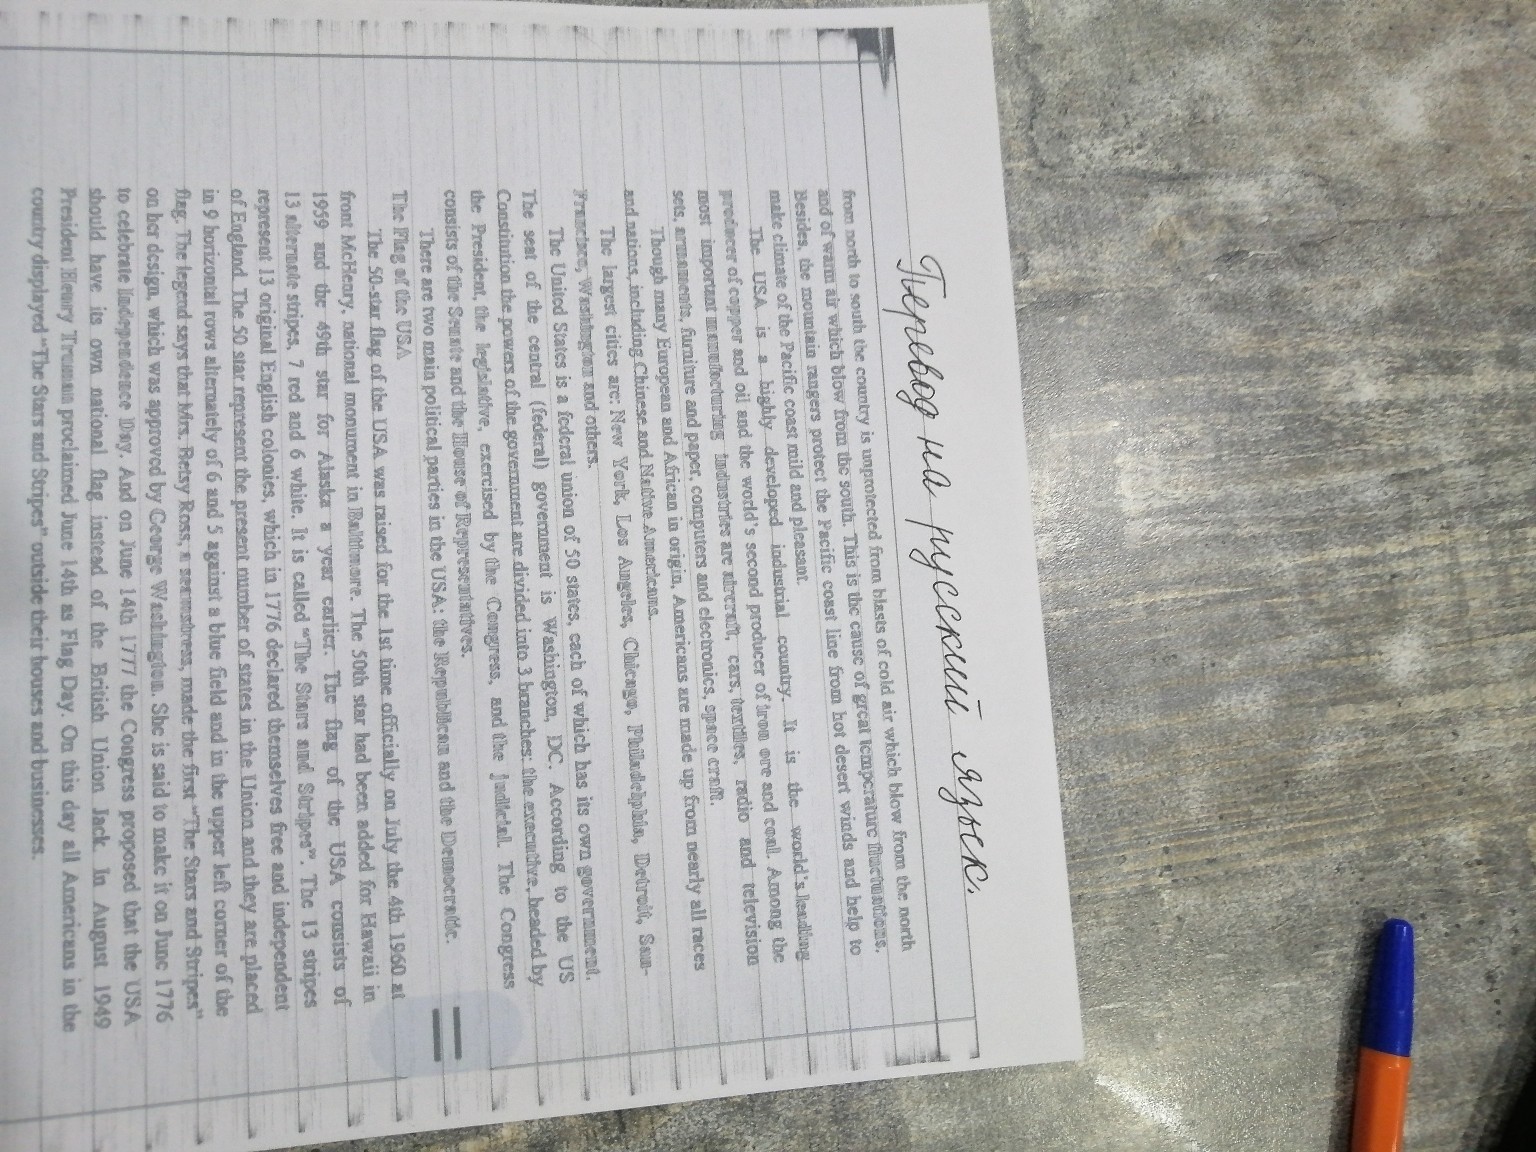 Перевод на русский язык.
from north to south the country is unprotected from blasts of cold air which blow from the north
and of warm air which blow from the south. This is the cause of great temperature fluctuations.
Besides, the mountain rangers protect the Pacific coast line from hot desert winds and help to
make climate of the Pacific coast mild and pleasant.
The USA is a highly developed industrial country. It is the world's leading
producer of copper and oil and the world's second producer of iron ore and coal. Among the
most important manufacturing industries are aircraft, cars, textiles, radio and television
sets, armaments, furniture and paper, computers and electronics, space craft.
Though many European and African in origin, Americans are made up from nearly all races
and nations, including Chinese and Native Americans.
The largest cities are: New York, Los Angeles, Chicago, Philadelphia, Detroit, San-
Francisco, Washington and others.
The United States is a federal union of 50 states, each of which has its own government.
The seat of the central (federal) government is Washington, DC. According to the US
Constitution the powers of the government are divided into 3 branches: the executive, headed by
the President, the legislative, exercised by the Congress, and the judicial. The Congress
consists of the Senate and the House of Representatives.
There are two main political parties in the USA: the Republican and the Democratic.
The Flag of the USA
The 50-star flag of the USA was raised for the 1st time officially on July the 4th 1960 at
front McHenry, national monument in Baltimore. The 50th star had been added for Hawaii in
1959 and the 49th star for Alaska a year earlier. The flag of the USA consists of
13 alternate stripes, 7 red and 6 white. It is called "The Stars and Stripes". The 13 stripes
represent 13 original English colonies, which in 1776 declared themselves free and independent
of England. The 50 star represent the present number of states in the Union and they are placed
in 9 horizontal rows alternately of 6 and 5 against a blue field and in the upper left corner of the
flag. The legend says that Mrs. Betsy Ross, a seamstress, made the first "The Stars and Stripes"
on her design, which was approved by George Washington. She is said to make it on June 1776
to celebrate Independence Day. And on June 14th 1777 the Congress proposed that the USA
should have its own national flag instead of the British Union Jack. In August 1949
President Henry Truman proclaimed June 14th as Flag Day. On this day all Americans in the
country displayed "The Stars and Stripes" outside their houses and businesses.